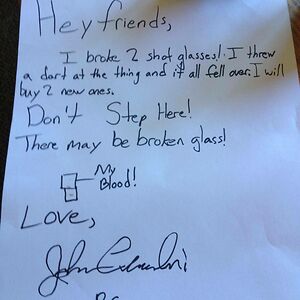 Hey friends,
I broke 2 shot glasses! I threw
a dart at the thing and it all fell over. I will
buy 2 new ones.
Don't Step Here!
There may be broken glass!
My
Blood!
Love,
John